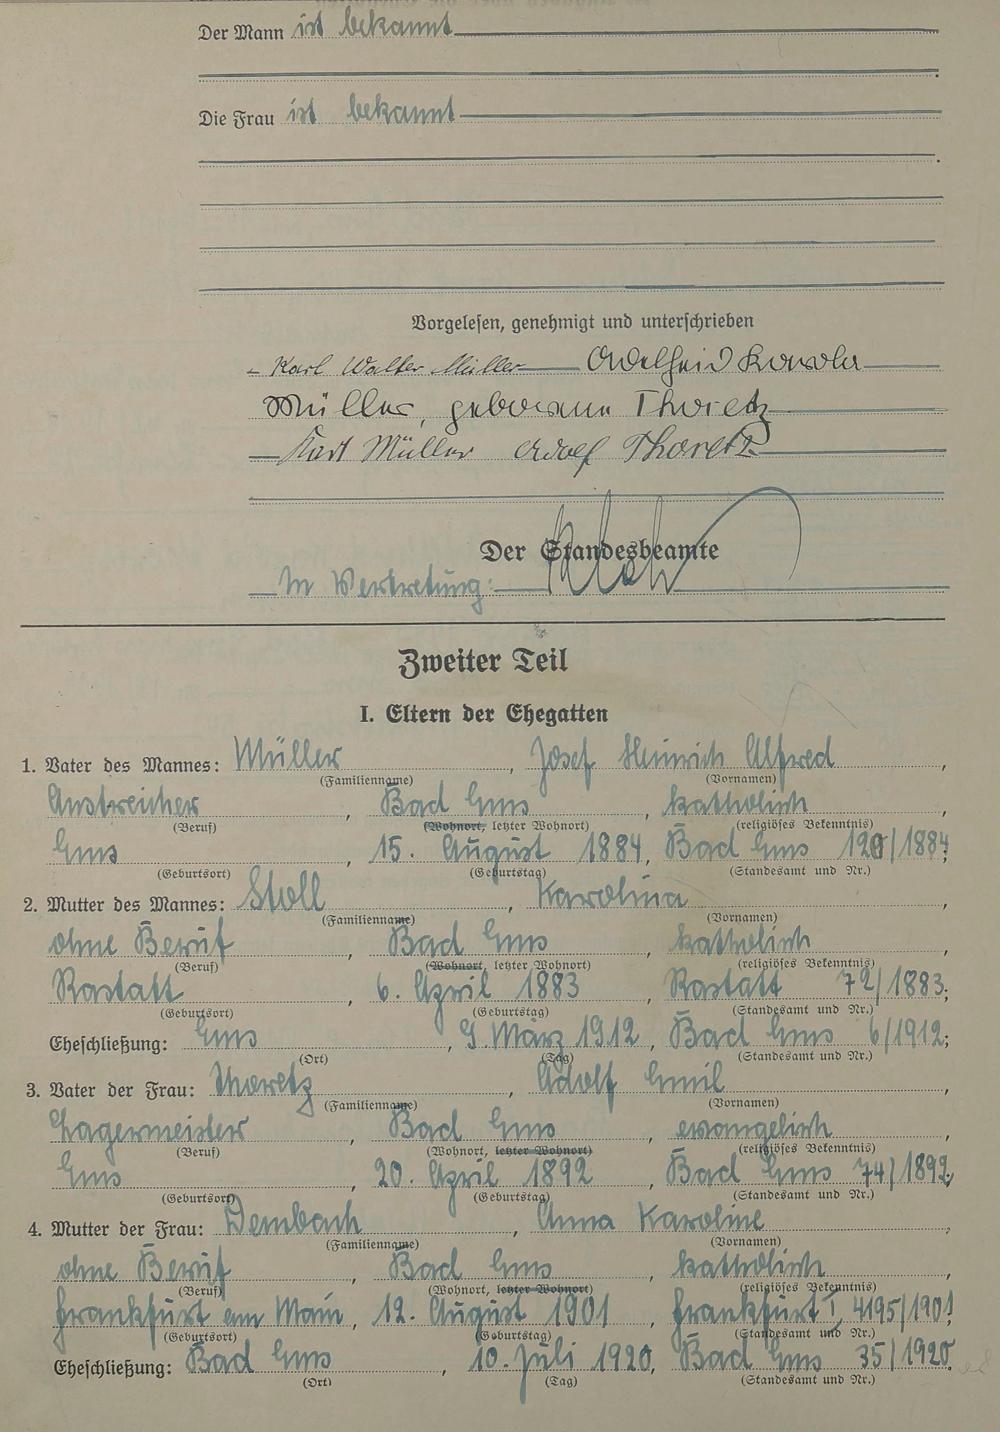 Der Mann ist bekannt
Die Frau ist bekannt
Vorgelesen, genehmigt und unterschrieben
Karl Walter Müller Adelheid
Müller, geborene Thoretz
Karl Müller Adolf Thoretz
Der Standesbeamte
In Vertretung:
Zweiter Teil
I. Eltern der Ehegatten
1. Vater des Mannes: Müller, Josef Heinrich Alfred,
(Familienname) (Vornamen)
Anstreicher, Bad Ems, katholisch,
(Beruf) (Wohnort, letzter Wohnort) (religiöses Bekenntnis)
Ems, 15. August 1884, Bad Ems 120/1884;
(Geburtsort) (Geburtstag) (Standesamt und Nr.)
2. Mutter des Mannes: Stoll, Karolina,
(Familienname) (Vornamen)
ohne Beruf, Bad Ems, katholisch,
(Beruf) (Wohnort, letzter Wohnort) (religiöses Bekenntnis)
Rastatt, 6. April 1883, Rastatt 72/1883;
(Geburtsort) (Geburtstag) (Standesamt und Nr.)
Eheschließung: Ems, 9. März 1912, Bad Ems 6/1912;
(Ort) (Tag) (Standesamt und Nr.)
3. Vater der Frau: Thoretz, Adolf Emil,
(Familienname) (Vornamen)
Lagermeister, Bad Ems, evangelisch,
(Beruf) (Wohnort, letzter Wohnort) (religiöses Bekenntnis)
Ems, 20. April 1892, Bad Ems 74/1892,
(Geburtsort) (Geburtstag) (Standesamt und Nr.)
4. Mutter der Frau: Dembach, Anna Karoline,
(Familienname) (Vornamen)
ohne Beruf, Bad Ems, katholisch,
(Beruf) (Wohnort, letzter Wohnort) (religiöses Bekenntnis)
Frankfurt am Main, 12. August 1901, Frankfurt I, 4195/1901
(Geburtsort) (Geburtstag) (Standesamt und Nr.)
Eheschließung: Bad Ems, 10. Juli 1920, Bad Ems 35/1920.
(Ort) (Tag) (Standesamt und Nr.)